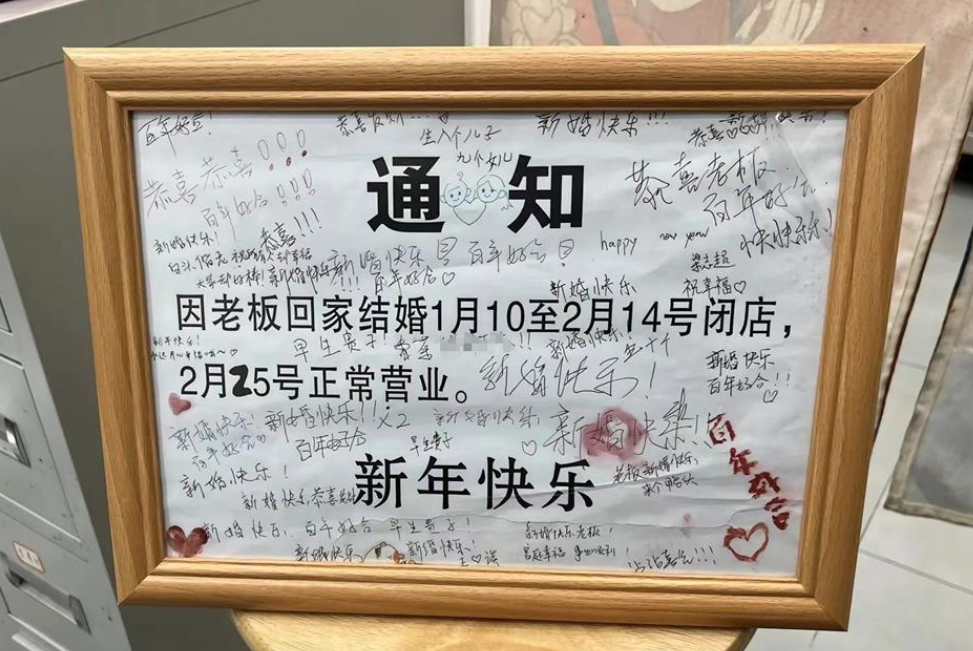 百年好合!
恭喜发财
生八个儿子
九个女儿
新婚快乐!!!
恭喜
恭喜恭喜!!!
百年好合!!!
恭喜老板
百年好合
快快乐乐!
通知
新婚快乐!
恭喜!!!
白头偕老
新婚快乐
百年好合
happy new year
梁志超
祝幸福♡
百年好合♡
新婚快乐
因老板回家结婚1月10至2月14号闭店，
新年快乐!
早生贵子!
新婚快乐!
生十个
2月25号正常营业。
新婚快乐!
新婚快乐
百年好合!!♡
新婚快乐!
百年好合♡
新婚快乐!!×2
百年好合
新婚快乐
早生贵子
新婚快乐!
百年好合
新婚快乐!
新年快乐
老板新婚快乐
来个鸭头
新婚快乐 恭喜发财
新婚快乐 百年好合 早生贵子!
新婚快乐老板!
家庭幸福 事业顺利!
新婚快乐
新婚快乐!
沾沾喜气!!!